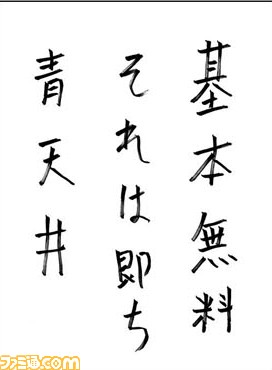 基本無料
それは即ち
青天井
ファミ通.com